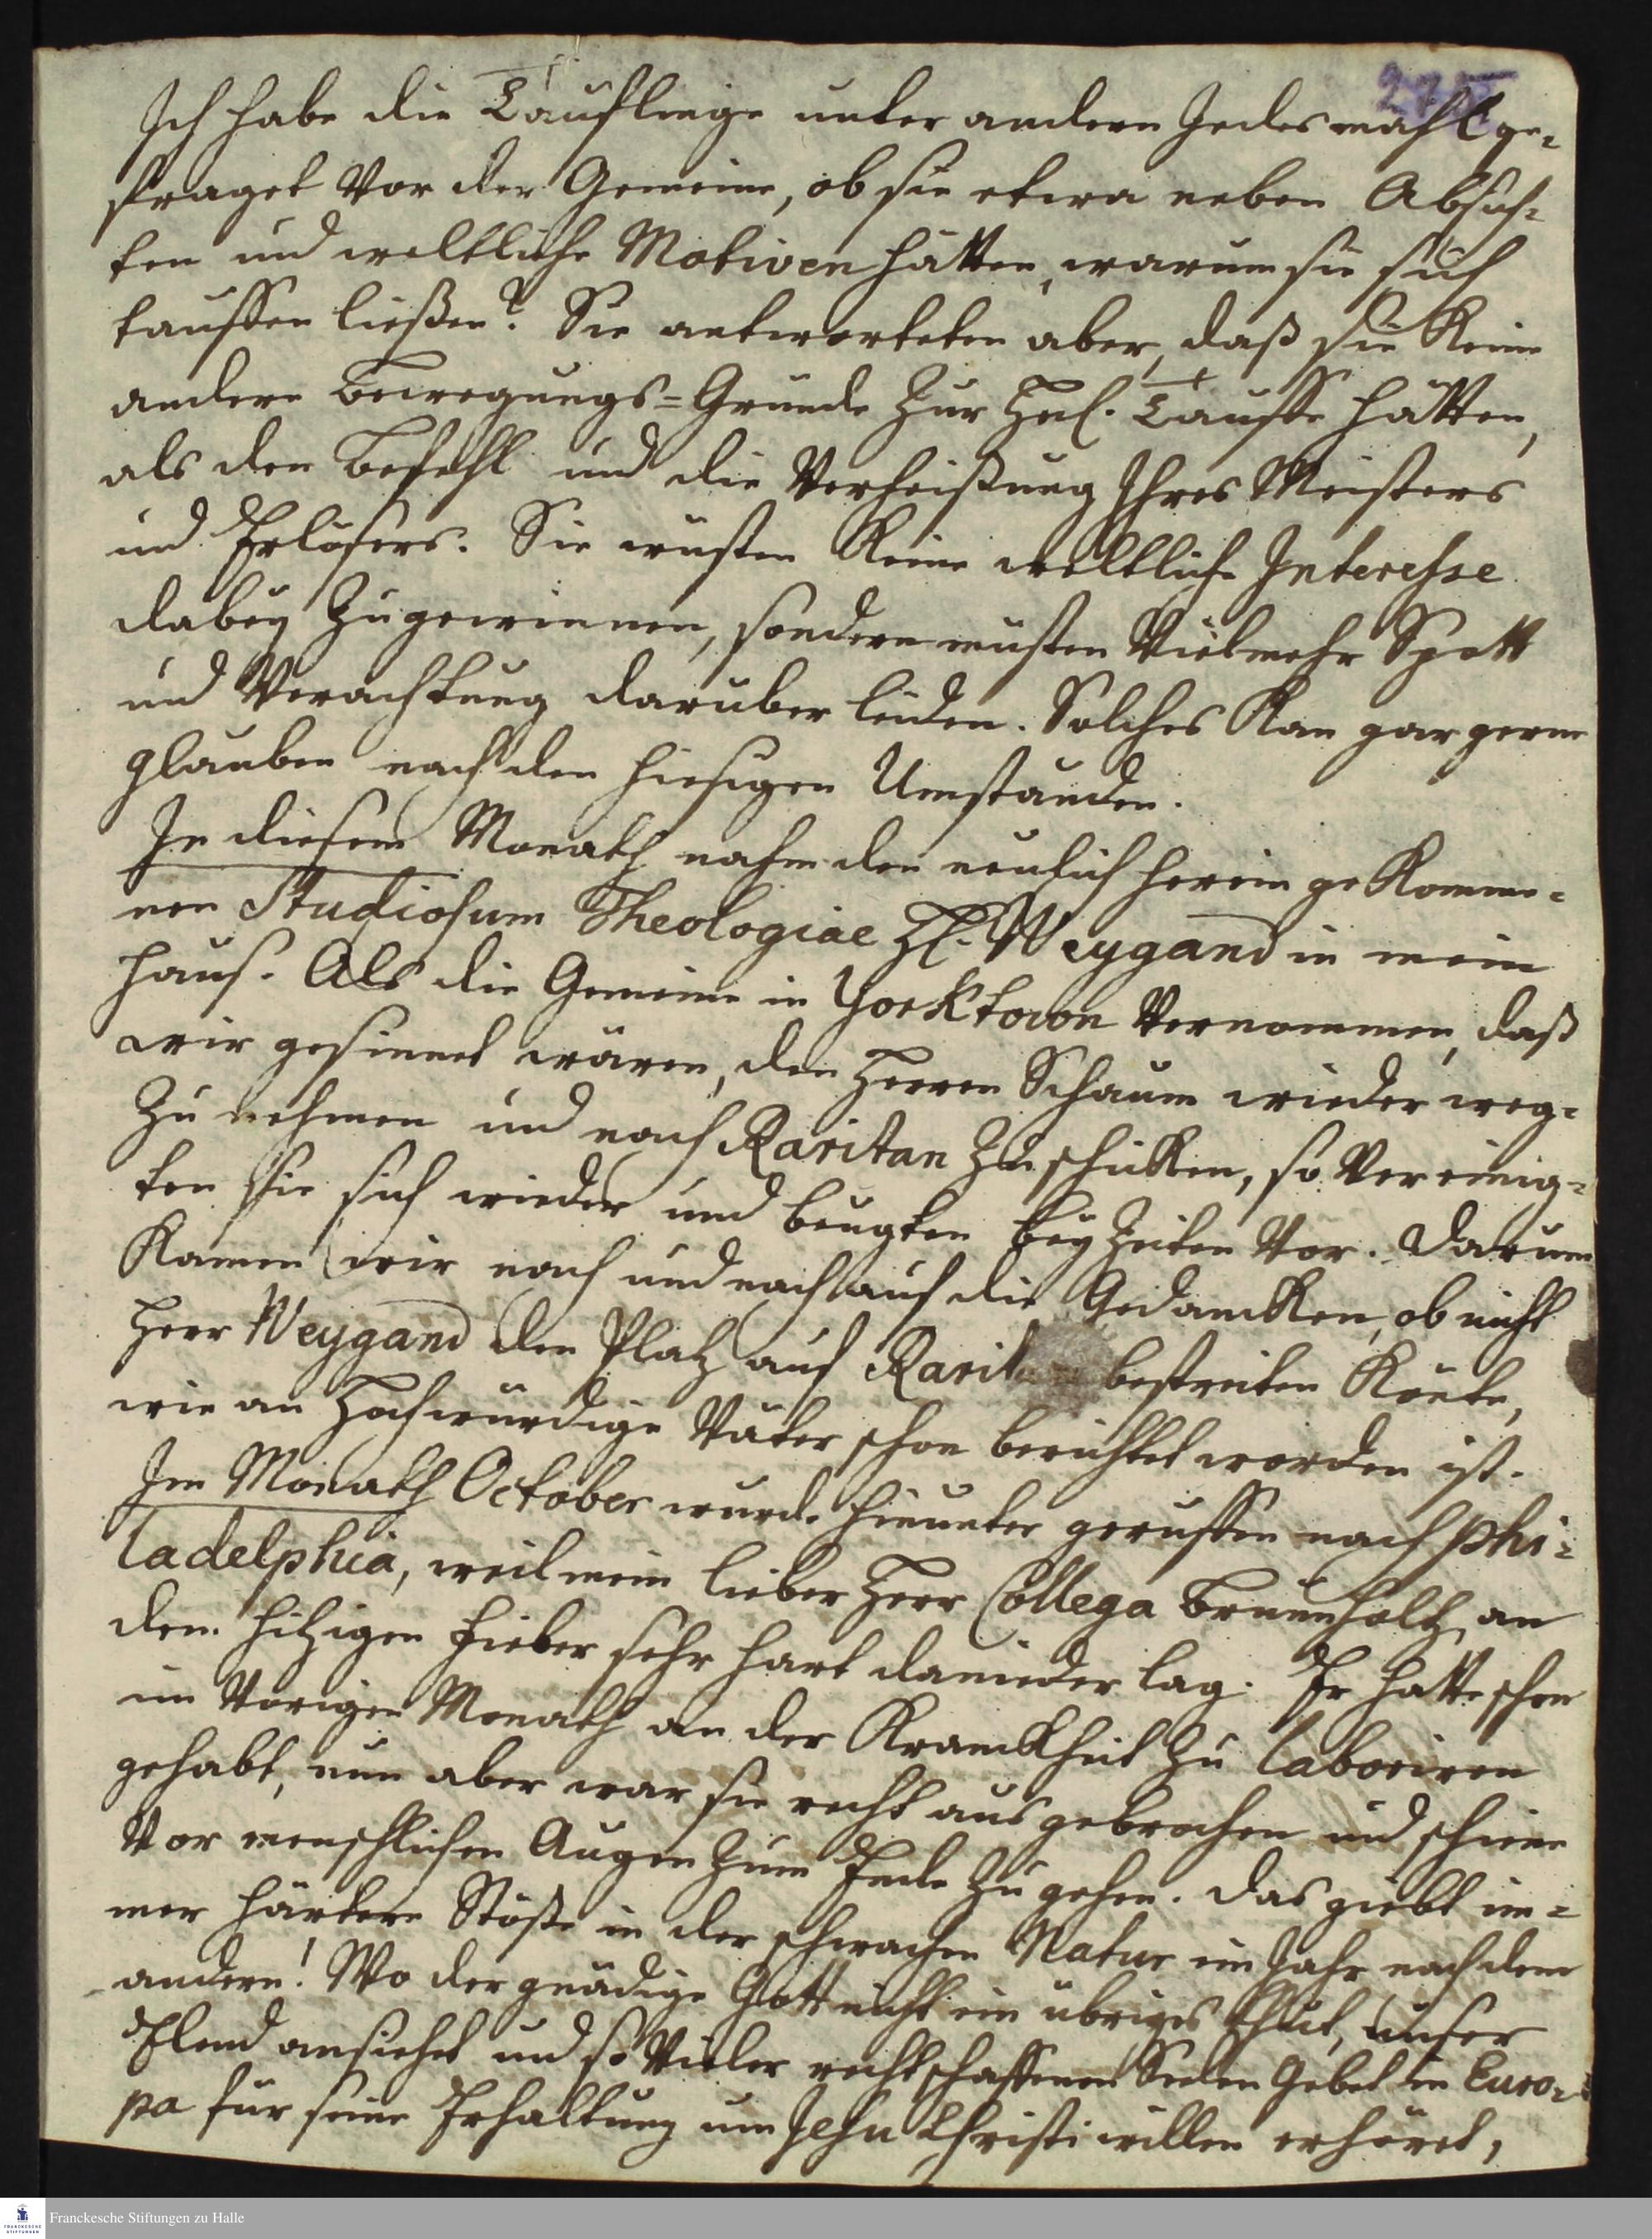 Ich habe die Täuflinge unter andern Jedesmahl ge-
fraget vor der Gemeine, ob sie etwa neben Absich-
ten und weltliche Motiven hätten, warum sie sich
tauffen ließen? Sie antworteten aber, daß sie Keine
andere Bewegungs=Gründe zur Heil. Tauffe hätten,
als den Befehl und die Verheißung Ihres Meisters
und Erlösers. Sie wüsten Keine weltliche Interesse
dabey zu gewinnen, sondern müsten vielmehr Spott
und Verachtung darüber leiden. Solches Kan gar gerne
glauben nach den hiesigen Umständen.
In diesem Monath nahm den neulich herein geKomme-
nen Studiosum Theologiae H. Weygand in mein
Hauß. Als die Gemeine in Yorktown vernommen, daß
wir gesinnet wären, den Herrn Schaum wieder weg-
zu nehmen und nach Raritan zu schicken, so vereinig-
ten sie sich wieder und beugten bey Zeiten vor. Darum
Kamen wir nach und nach auf die Gedancken, ob nicht
Herr Weygand den Platz auf Raritan bestreiten Könte,
wie an Hochwürdige Väter schon berichtet worden ist.
Im Monath October wurde hinunter geruffen nach Phi-
ladelphia, weil mein lieber Herr Collega Brunnholtz an
dem hitzigen Fieber sehr hart danieder lag. Er hatte schon
im vorigen Monath an der Kranckheit zu laboriren
gehabt, nun aber war sie recht ausgebrochen und schiene
vor menschlichen Augen zum Ende zu gehen. Das giebt im-
mer härtere Stöße in der schwachen Natur ein Jahr nach dem
andern! Wo der gnädige Gott nicht ein übriges thut, unser
Elend ansiehet und so vieler rechtschaffenen Seelen Gebet in Euro-
pa für seine Erhaltung um Jesu Christi willen erhöret,
Franckesche Stiftungen zu Halle